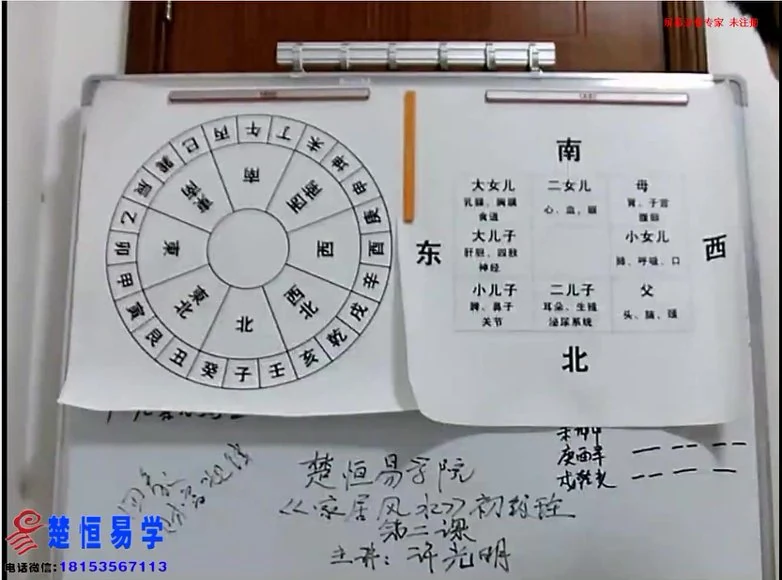 屏幕录像专家 未注册
午 丁 未 坤 申 庚 酉 辛 戌 乾 亥 壬 子 癸 丑 艮 寅 甲 卯 乙 辰 巽 巳 丙
南 西南 西 西北 北 東北 東 東南
南
大女儿 二女儿 母
乳腺、胸膈 心、血、眼 胃、子宫
食道 腹部
东 大儿子 小女儿 西
肝胆、四肢 肺、呼吸、口
神经
小儿子 二儿子 父
脾、鼻子 耳朵、生殖 头、脑、颈
关节 泌尿系统
北
未坤申
庚酉辛
戌乾亥
楚恒易学院
《家居风水》初级班
第二课
主讲:许光明
楚恒易学
电话微信:18153567113